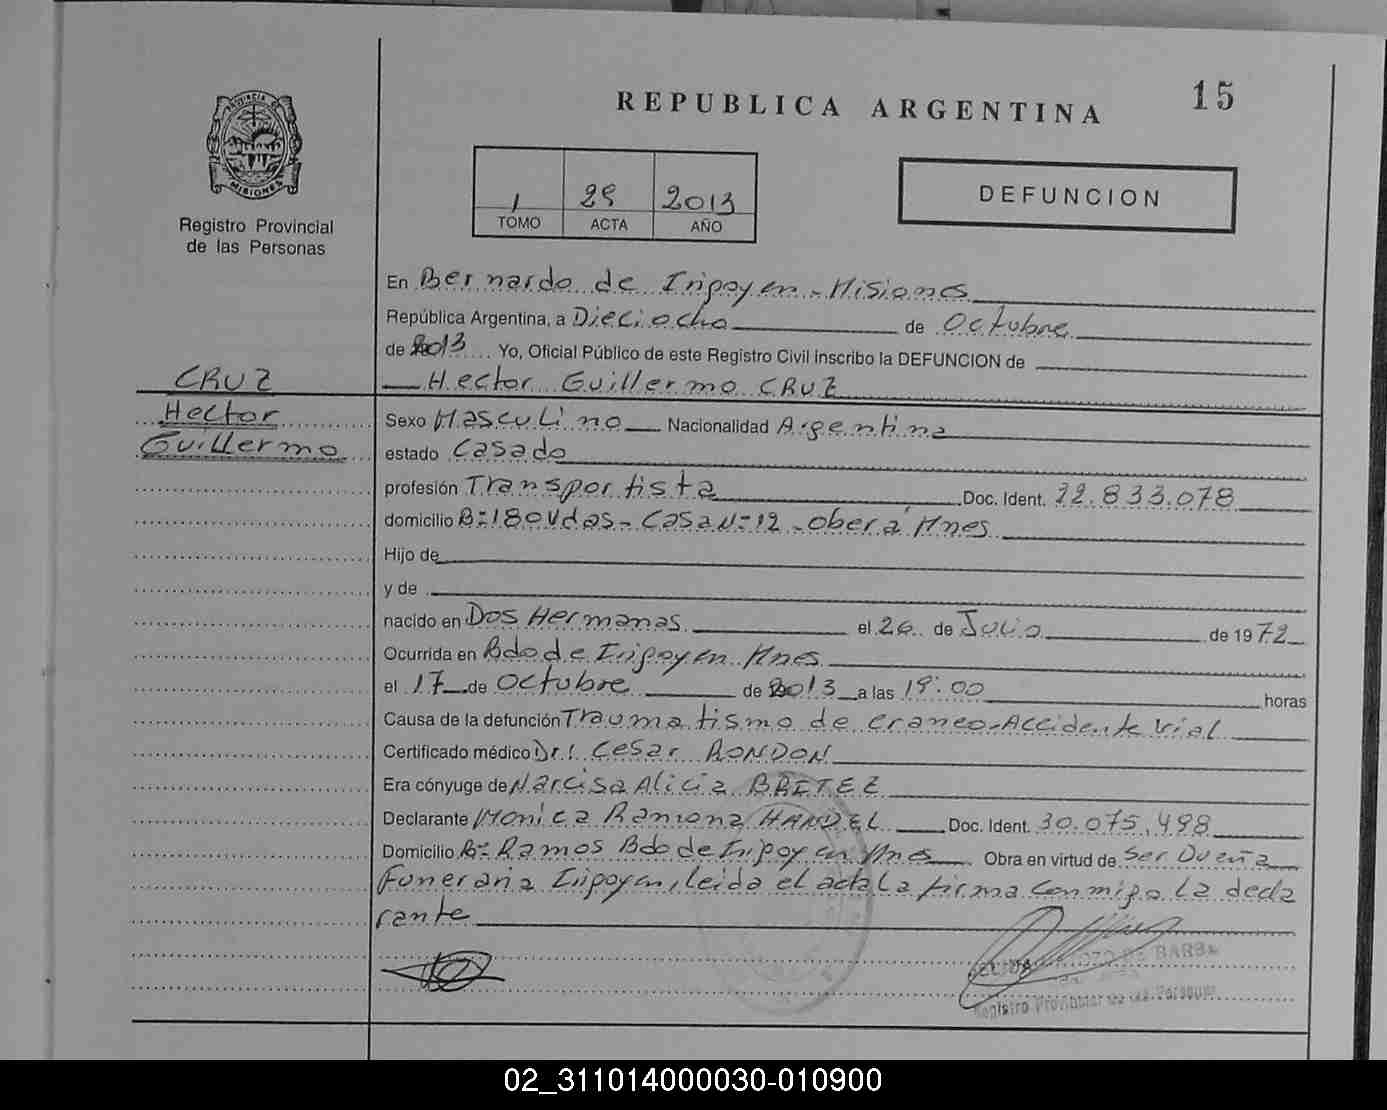 REPUBLICA ARGENTINA
15
PROVINCIA DE
MISIONES
Registro Provincial
de las Personas
1 29 2013
TOMO ACTA AÑO
DEFUNCION
En Bernardo de Irigoyen - Misiones
República Argentina, a Dieciocho de Octubre
de 2013 Yo, Oficial Público de este Registro Civil inscribo la DEFUNCION de
CRUZ
Hector Guillermo CRUZ
Hector
Guillermo
Sexo Masculino Nacionalidad Argentina
estado Casado
profesión Transportista Doc. Ident. 22.833.078
domicilio B=180Vdas- Casa N=12 - Oberá, Mnes
Hijo de
y de
nacido en Dos Hermanas el 26 de Julio de 1972
Ocurrida en Bdo de Irigoyen Mnes
el 17 de Octubre de 2013 a las 19:00 horas
Causa de la defunción Traumatismo de craneo-Accidente vial
Certificado médico Dr. Cesar RONDON
Era cónyuge de Narcisa Alicia BRITEZ
Declarante Monica Ramona HANDEL Doc. Ident. 30.075.498
Domicilio B= Ramos Bdo de Irigoyen Mnes Obra en virtud de Ser Dueña
Funeraria Irigoyen, leida el acta la firma conmigo la decla
rante
DE BARBA
Registro Provincial de las Personas
02_311014000030-010900